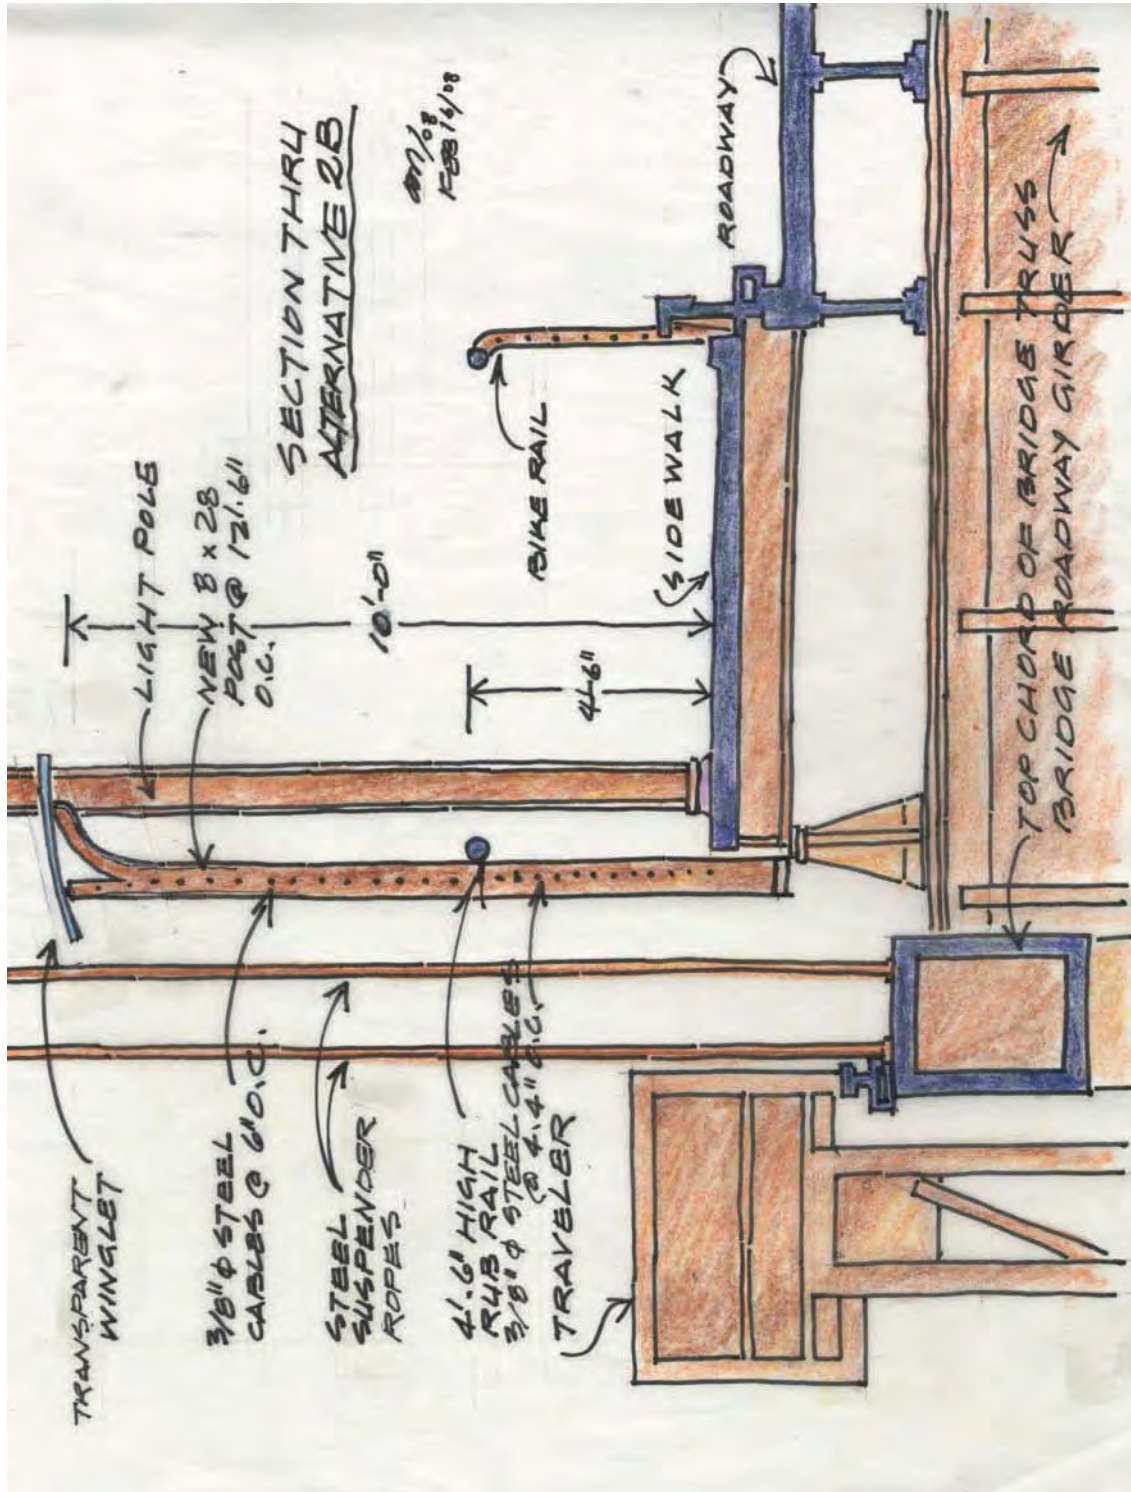 TRANSPARENT
WINGLET
3/8" φ STEEL
CABLES @ 6" O.C.
STEEL
SUSPENDER
ROPES
4'-6" HIGH
RUB RAIL
3/8" φ STEEL CABLES
@ 4.4" O.C.
TRAVELER
LIGHT POLE
NEW 8 x 28
POST @ 12'-6"
O.C.
10'-0"
4'-6"
SECTION THRU
ALTERNATIVE 2B
FEB 16/08
BIKE RAIL
SIDEWALK
ROADWAY
TOP CHORD OF BRIDGE TRUSS
BRIDGE ROADWAY GIRDER